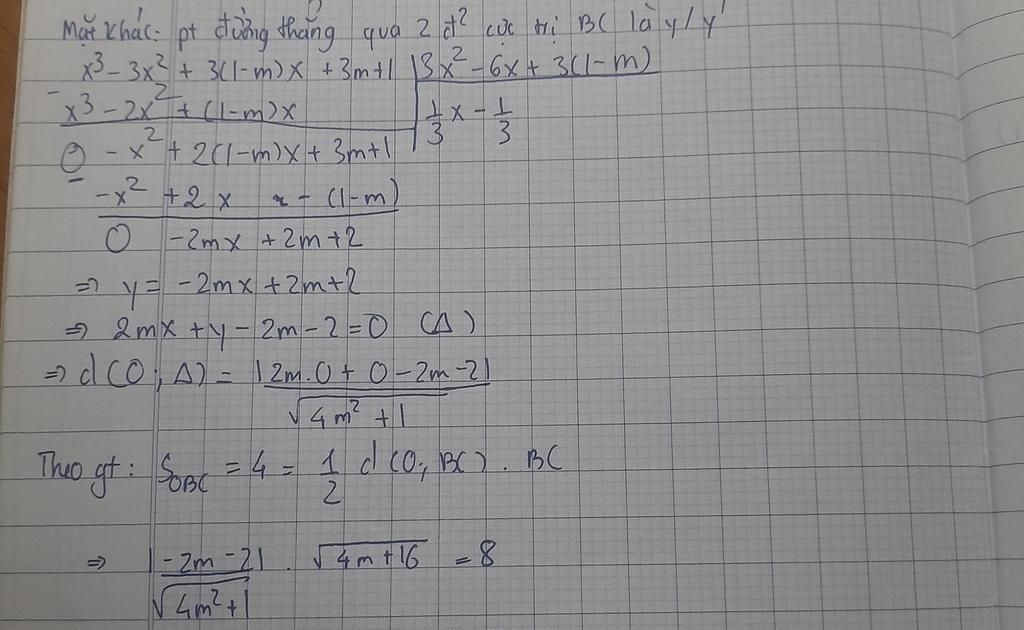 Mặt khác: pt đường thẳng qua 2 đ² cực trị BC là y/y'
x³ - 3x² + 3(1-m)x + 3m+1 | 3x² - 6x + 3(1-m)
- x³ - 2x² + (1-m)x | 1/3 x - 1/3
0 - x² + 2(1-m)x + 3m+1
- -x² + 2x - (1-m)
0 -2mx + 2m+2
⇒ y = -2mx + 2m+2
⇒ 2mx + y - 2m - 2 = 0 (Δ)
⇒ d(O; Δ) = |2m.0 + 0 - 2m - 2| / √(4m² + 1)
Theo gt: S_OBC = 4 = 1/2 d(O; BC) . BC
⇒ |-2m - 2| / √(4m² + 1) . √(4m+16) = 8